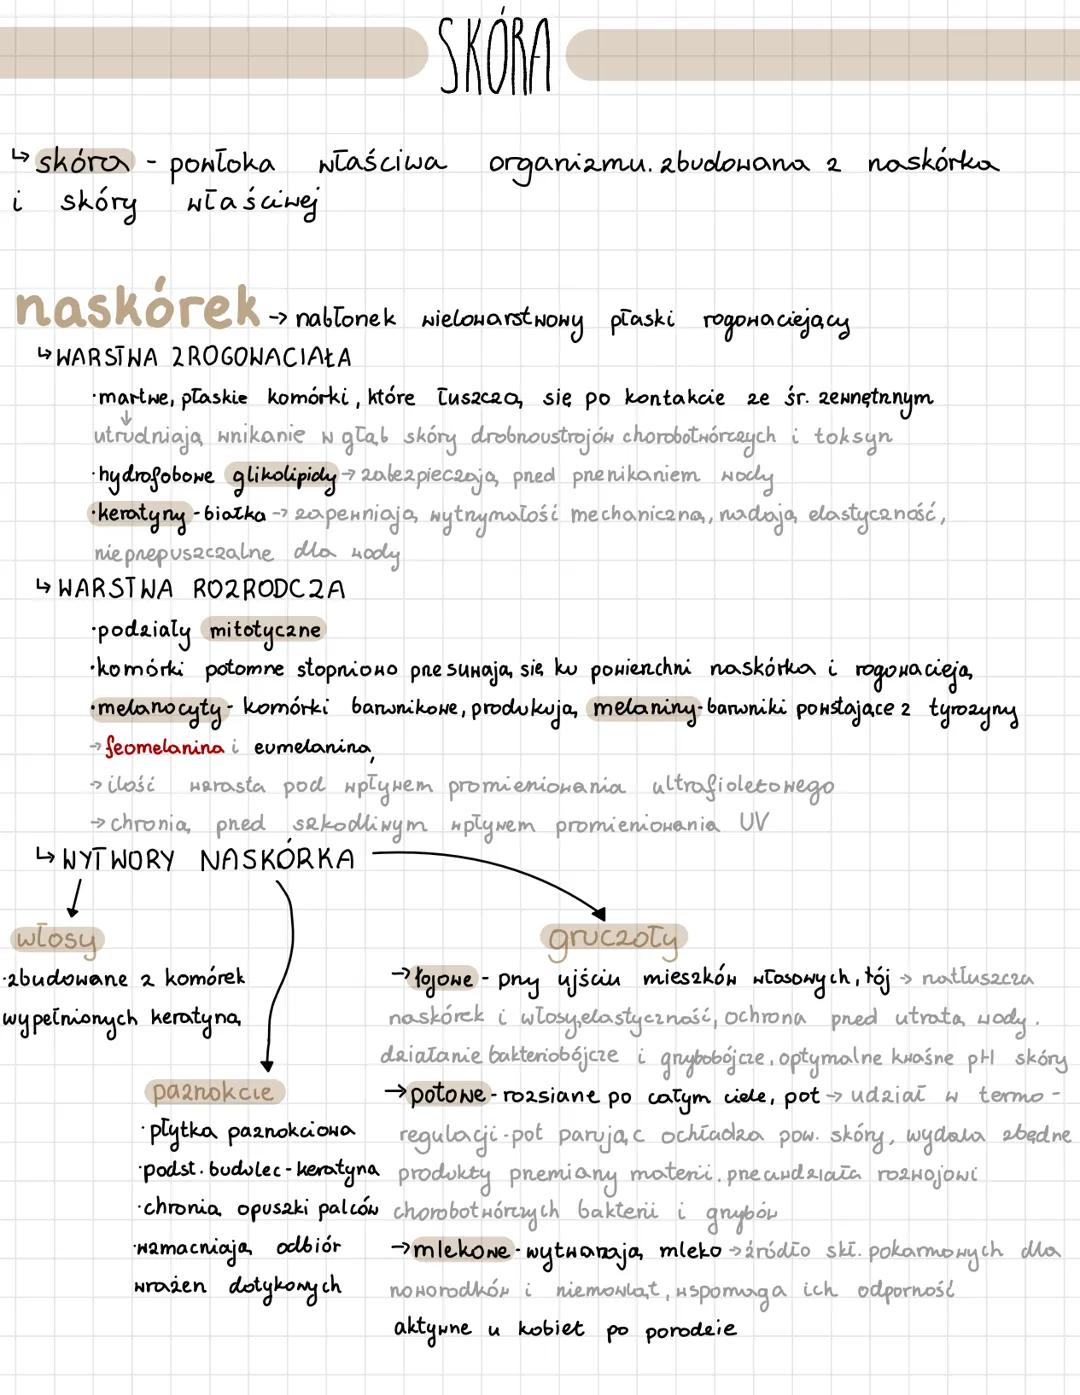 SKÓRA
↳ skóra - powłoka właściwa organizmu. zbudowana z naskórka
i skóry właściwej
naskórek → nabłonek wielowarstwowy płaski rogowaciejący
↳ WARSTWA ZROGOWACIAŁA
·martwe, płaskie komórki, które łuszczą się po kontakcie ze śr. zewnętrznym
↓
utrudniają wnikanie w głąb skóry drobnoustrojów chorobotwórczych i toksyn
·hydrofobowe glikolipidy → zabezpieczają przed przenikaniem wody
·keratyny - białka → zapewniają wytrzymałość mechaniczną, nadają elastyczność,
nieprzepuszczalne dla wody
↳ WARSTWA ROZRODCZA
·podziały mitotyczne
·komórki potomne stopniowo przesuwają się ku powierzchni naskórka i rogowacieją
·melanocyty - komórki barwnikowe, produkują melaniny - barwniki powstające z tyrozyny
→ feomelanina i eumelanina
→ ilość wzrasta pod wpływem promieniowania ultrafioletowego
→ chronią przed szkodliwym wpływem promieniowania UV
↳ WYTWORY NASKÓRKA
włosy
·zbudowane z komórek
wypełnionych keratyną
paznokcie
·płytka paznokciowa
·podst. budulec - keratyna
·chronią opuszki palców
·wzmacniają odbiór
wrażeń dotykowych
gruczoły
→ łojowe - przy ujściu mieszków włosowych, łój → natłuszcza
naskórek i włosy, elastyczność, ochrona przed utratą wody.
działanie bakteriobójcze i grzybobójcze, optymalne kwaśne pH skóry
→ potowe - rozsiane po całym ciele, pot → udział w termo-
regulacji - pot parując ochładza pow. skóry, wydala zbędne
produkty przemiany materii. przeciwdziała rozwojowi
chorobotwórczych bakterii i grzybów
→ mlekowe - wytwarzają mleko → źródło skł. pokarmowych dla
noworodków i niemowląt, wspomaga ich odporność
aktywne u kobiet po porodzie